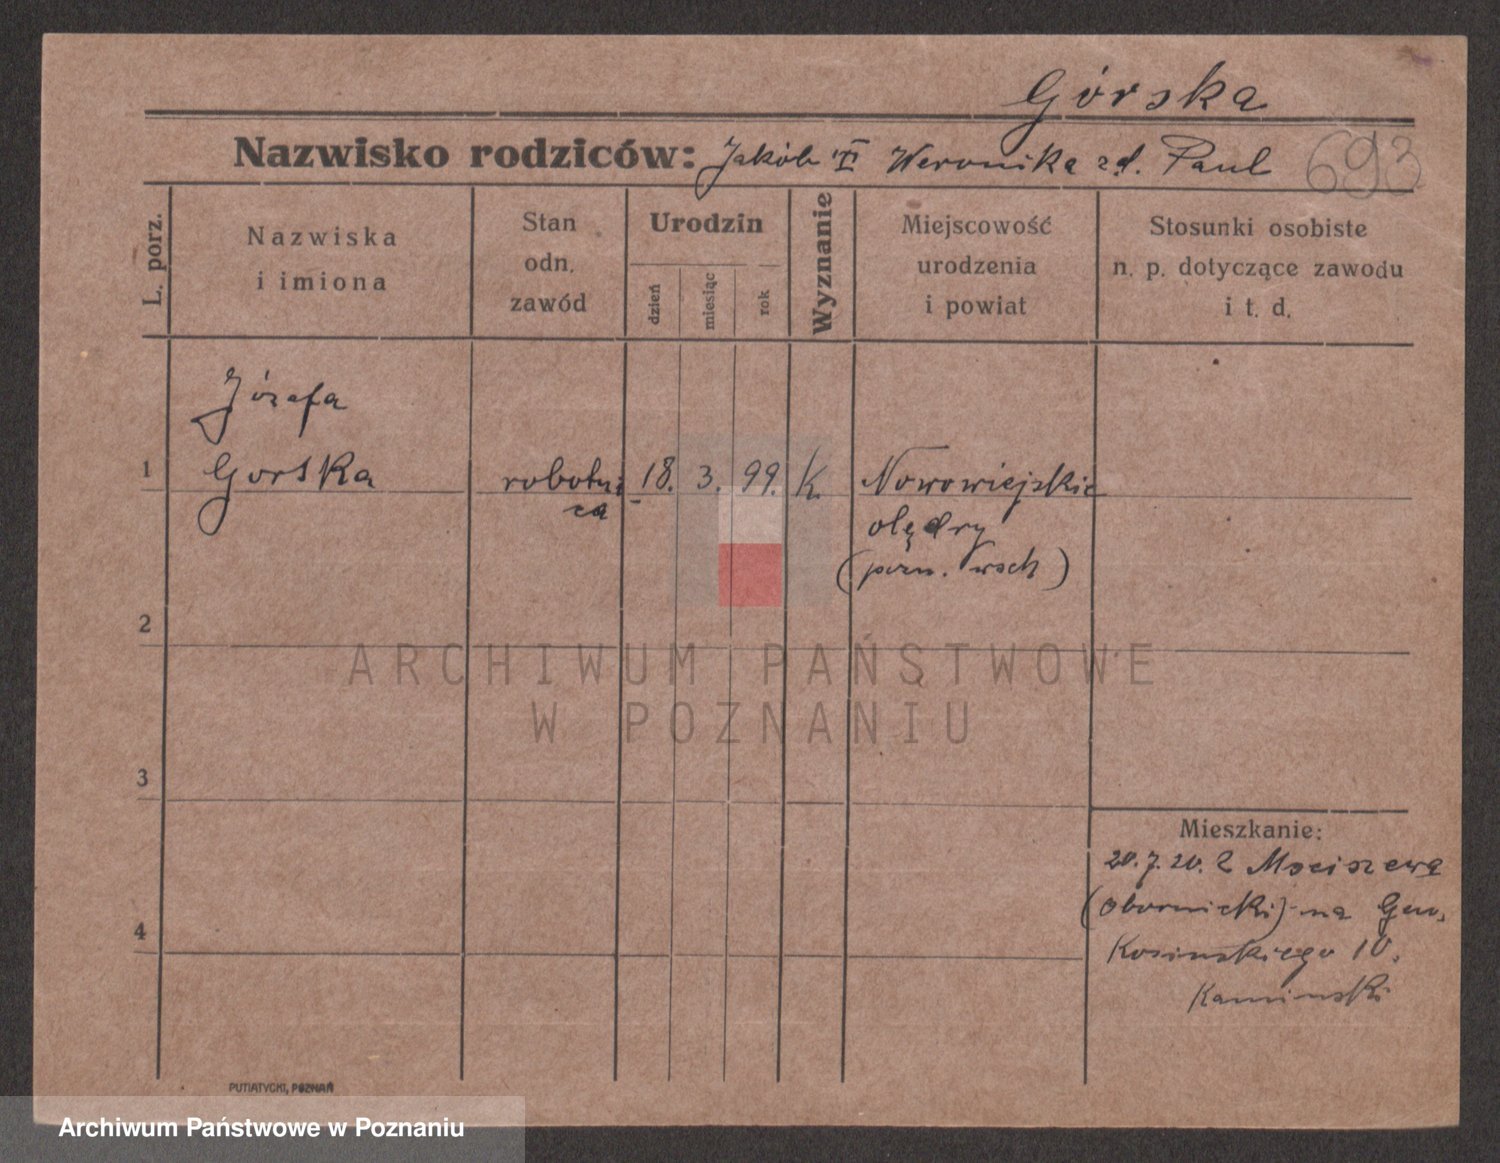 Górska
Nazwisko rodziców: Jakób Weronika zd. Paul 693
L. porz.
Nazwiska
i imiona
Stan
odn.
zawód
Urodzin
dzień
miesiąc
rok
Wyznanie
Miejscowość
urodzenia
i powiat
Stosunki osobiste
n. p. dotyczące zawodu
i t. d.
Józefa
1 Gorska robotni 18. 3. 99. K Nowowiejskie
ca
olędry
(pozn. wsch)
2
ARCHIWUM PAŃSTWOWE
W POZNANIU
3
Mieszkanie:
20.7.20. Z Mściszewa
(obornicki) na Gen.
4
Kosinskiego 10.
Kaminski
PUTIATYCKI, POZNAŃ
Archiwum Państwowe w Poznaniu